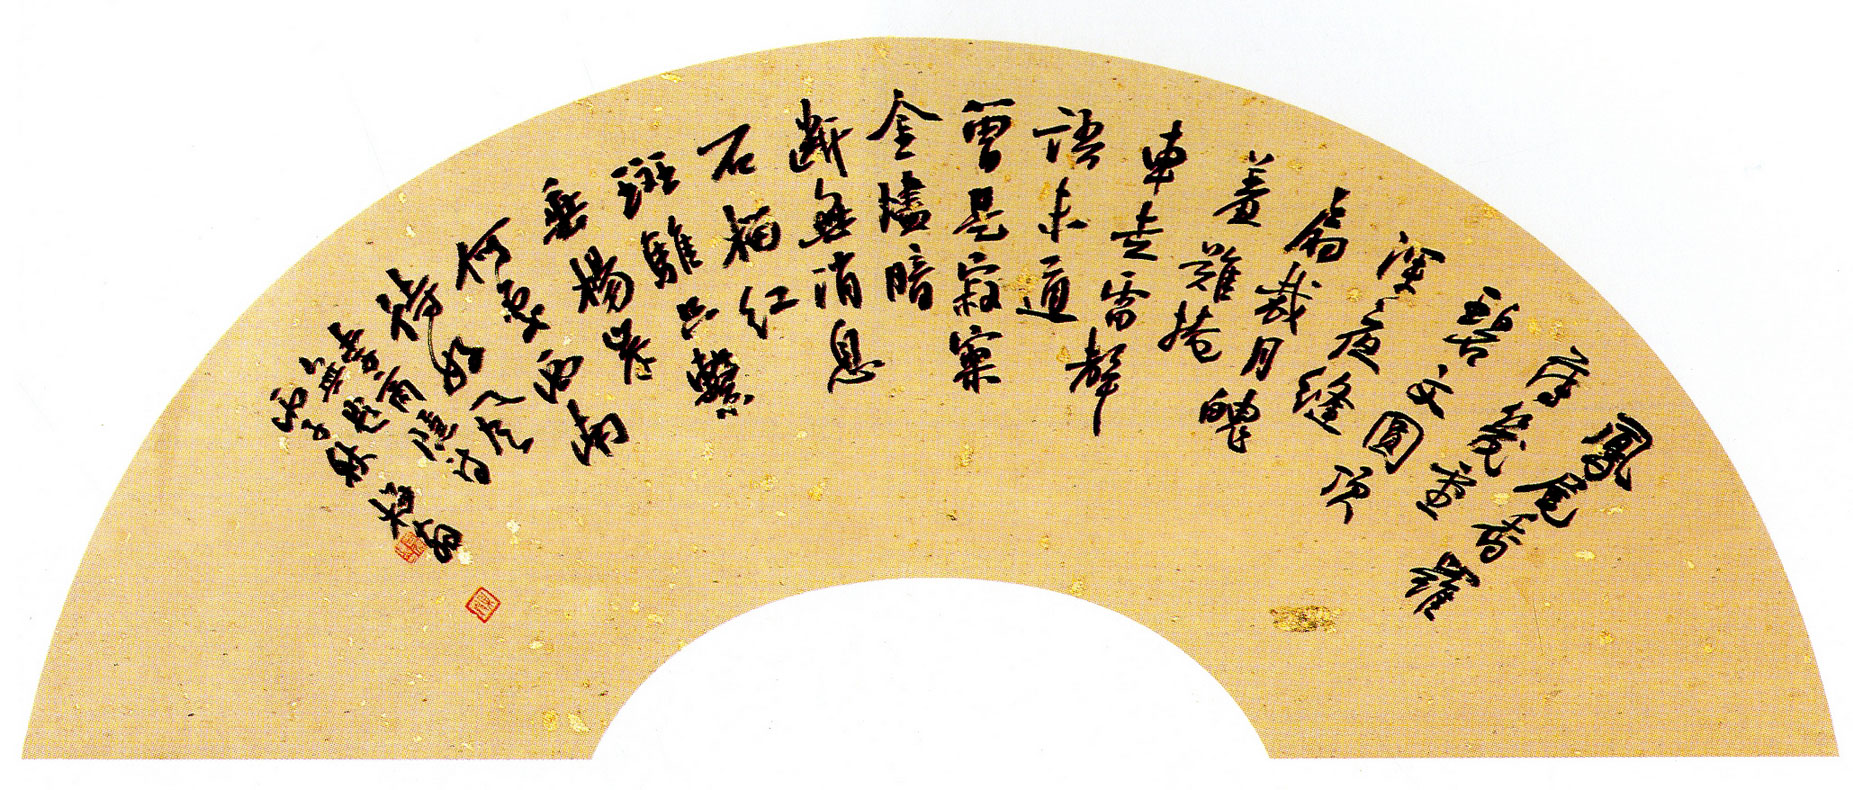 鳳尾香羅
薄幾重
碧文圓頂
深夜縫
扇裁月魄
羞難掩
車走雷聲
語未通
曾是寂寥
金燼暗
斷無消息
石榴紅
斑騅只繫
垂楊岸
何處西南
待好風
李商隱詩